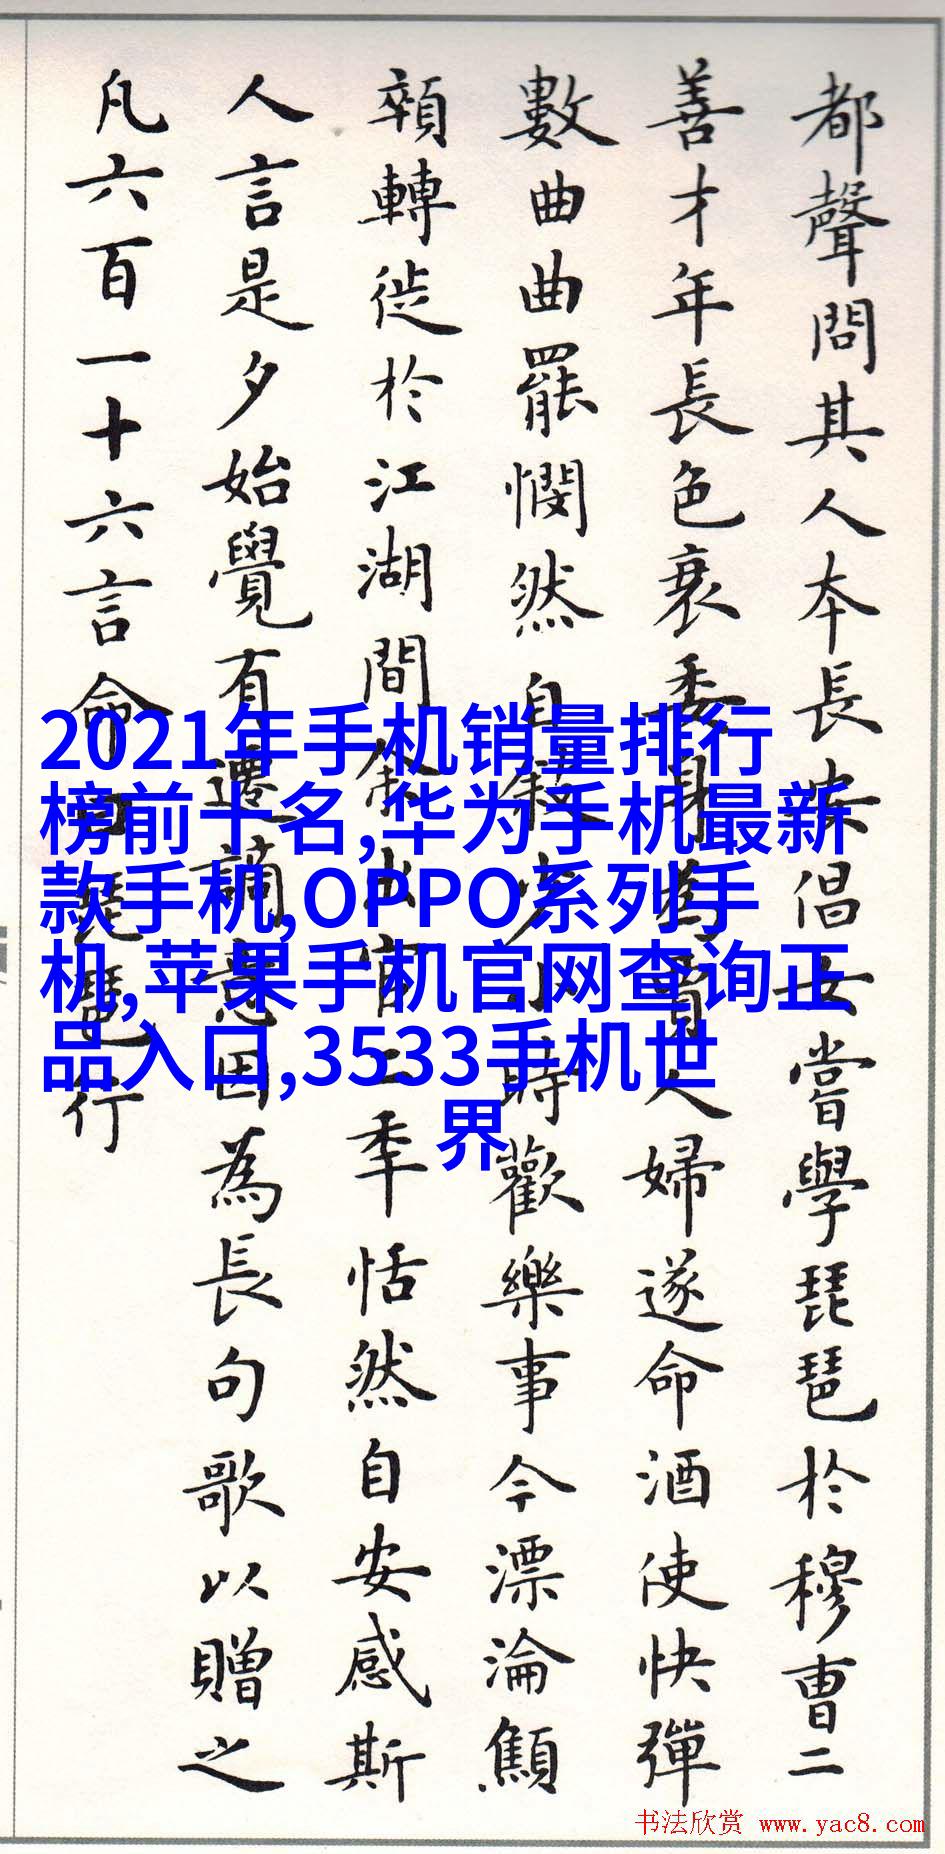 都聲問其人本長安倡女嘗學琵琶於穆曹二
善才年長色衰委身為賈人婦遂命酒使快彈
數曲曲罷憫然自敘少小時歡樂事今漂淪顦
顇轉徙於江湖間余出官二秊恬然自安感斯
人言是夕始覺有遷謫意因為長句歌以贈之
凡六百一十六言命曰琵琶行
2021年手机销量排行
榜前十名,华为手机最新
款手机,OPPO系列手
机,苹果手机官网查询正
品入口,3533手机世
界
书法欣赏 www.yac8.com